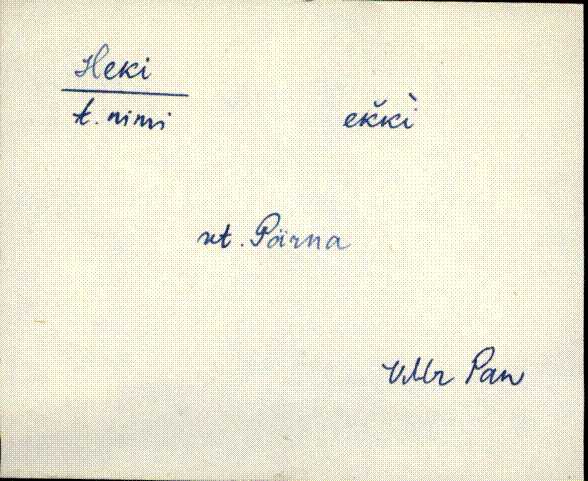 Heki
t. nimi ek̆kì
vt. Pärna
VMr Pan